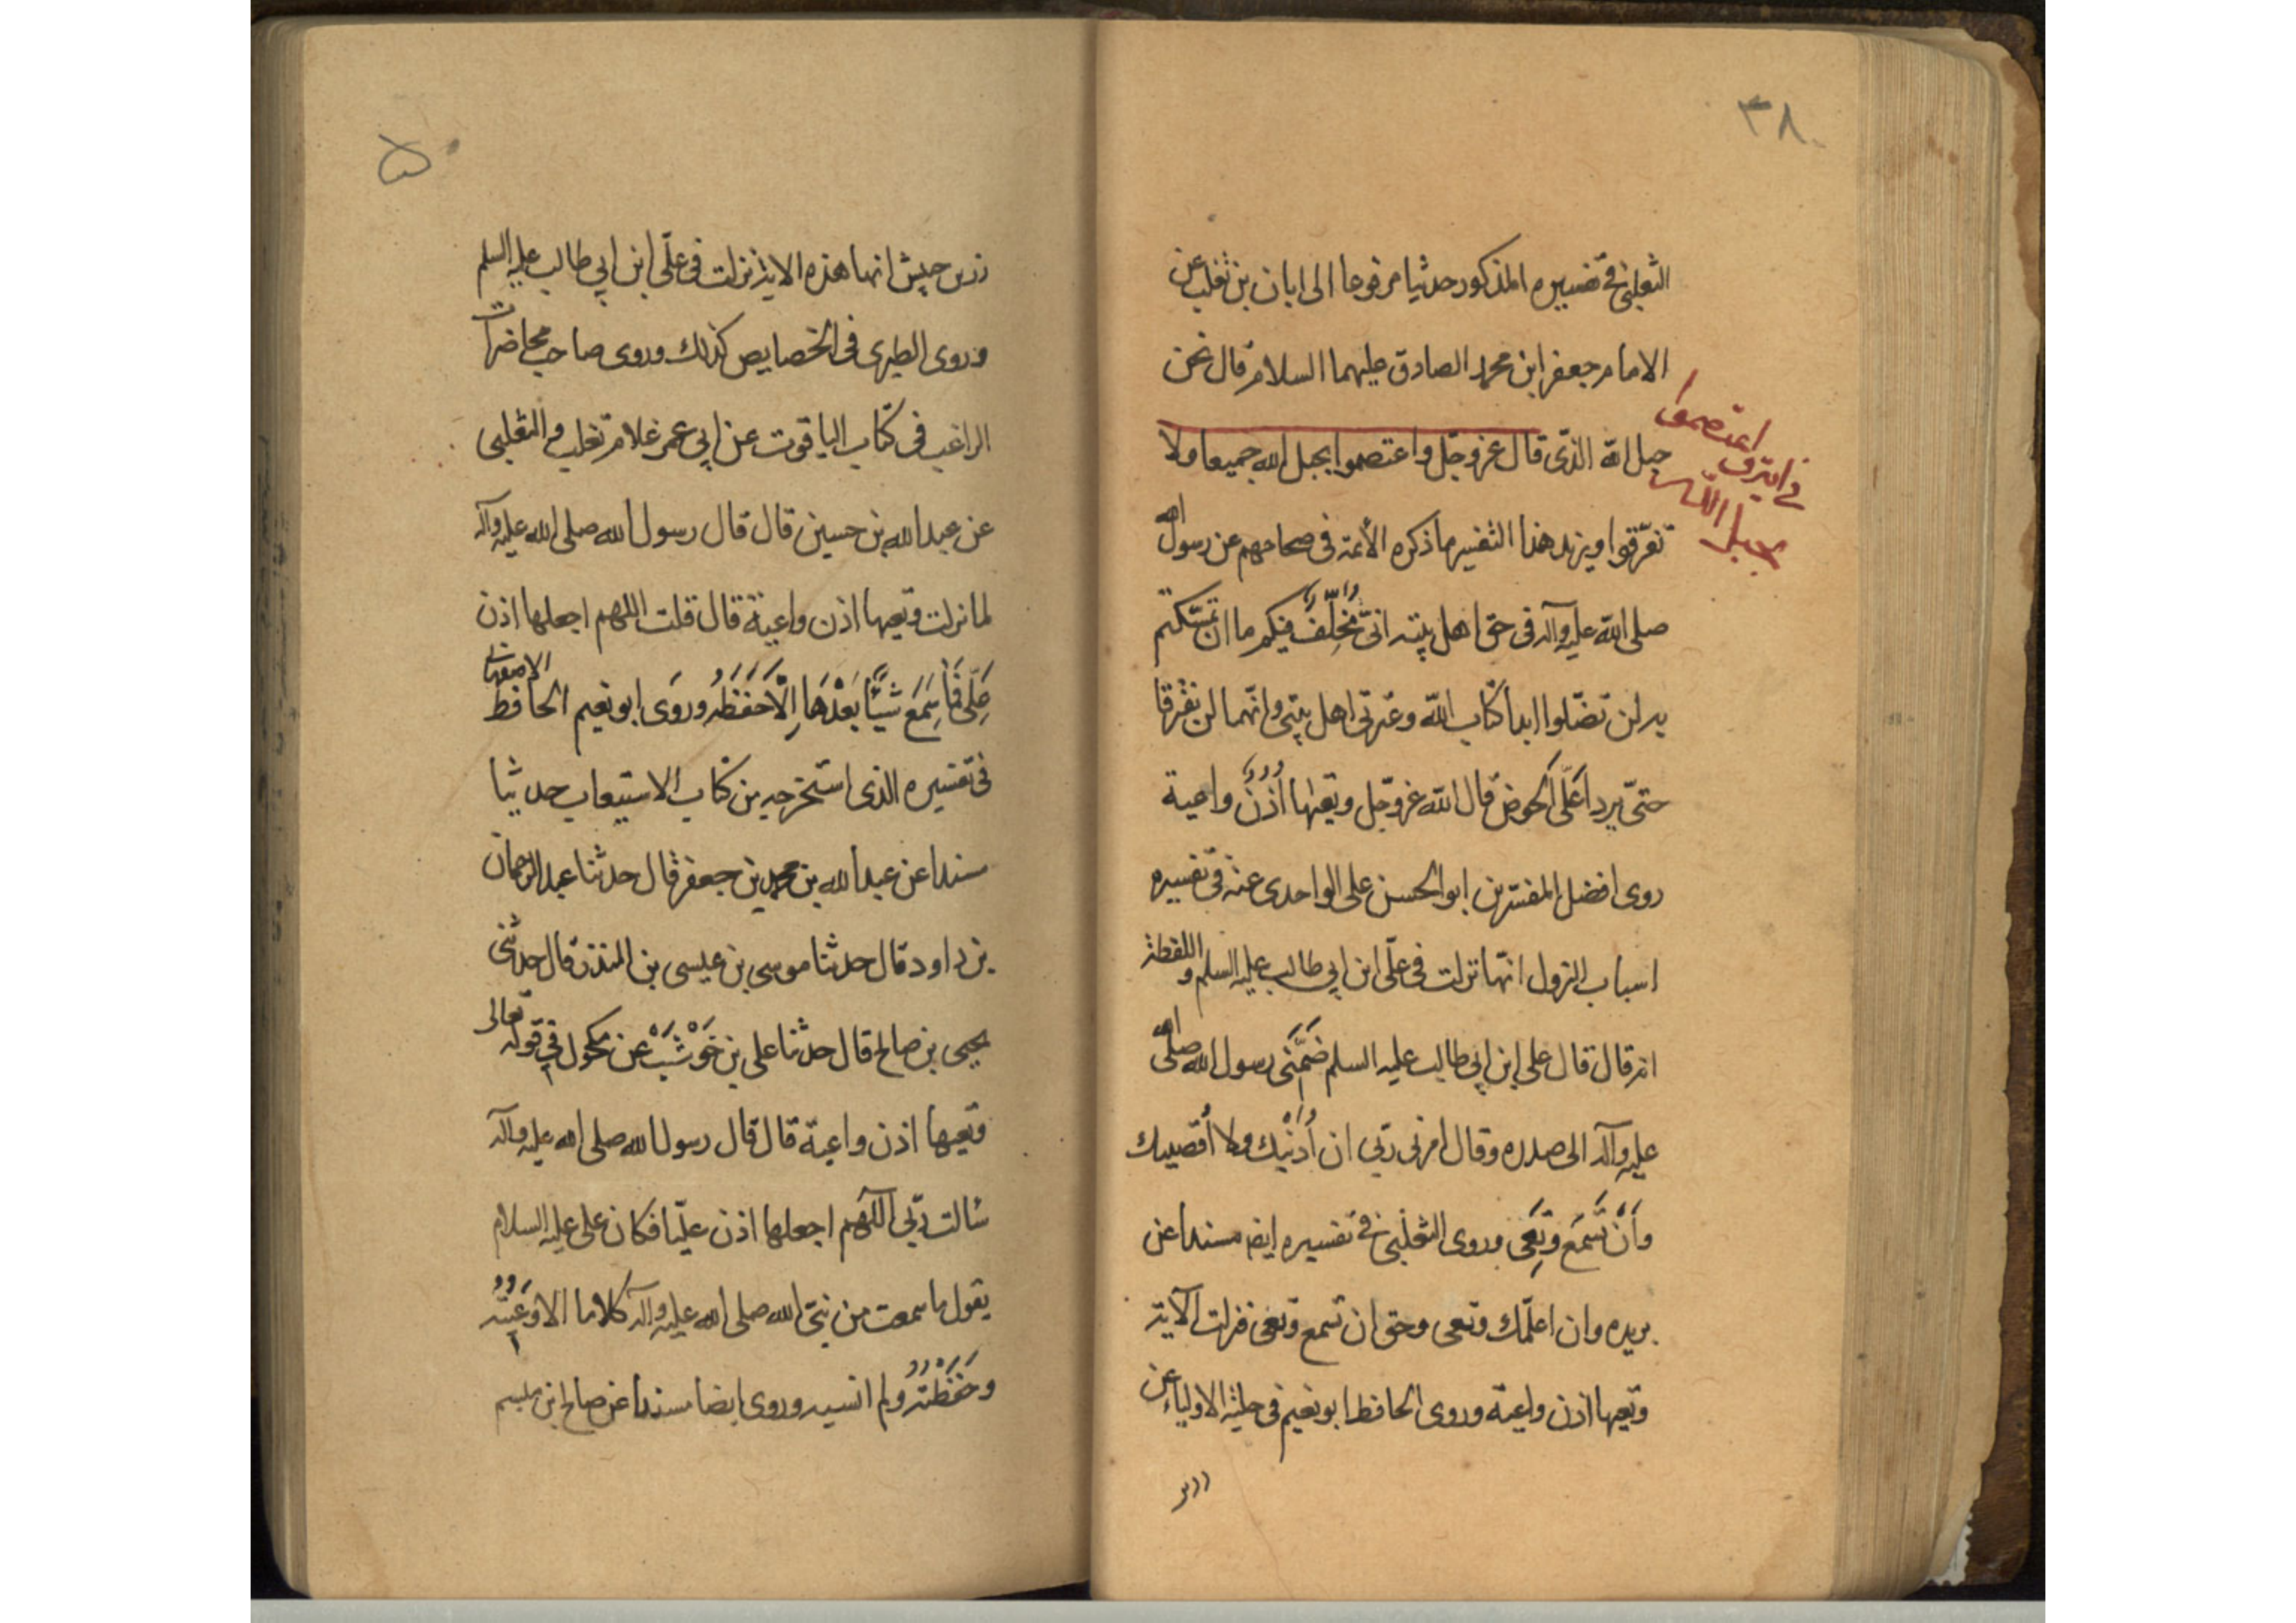 ٣٨
الثعلبي في تفسيره المذكور حديثا مرفوعا الى ابان بن تغلب عن
الامام جعفر ابن محمد الصادق عليهما السلام قال نحن
حبل الله الذي قال عز وجل واعتصموا بحبل الله جميعا ولا
تفرّقوا ويزيد هذا التفسير ما ذكره الأئمة في صحاحهم عن رسول الله
صلى الله عليه وآله في حق اهل بيته انّي مُخَلِّفٌ فيكم ما ان تمسّكتم
به لن تضلّوا ابدا كتاب الله وعترتي اهل بيتي وانّهما لن يفترقا
حتّى يردا عَلَى الحوض قال الله عز وجل وتعيها أُذُنٌ واعية
روى افضل المفسرين ابو الحسن على الواحدى عنه في تفسيره
اسباب النزول انّها نزلت في علّى ابن ابي طالب عليه السلم واللفظة
انه قال قال على ابن ابي طالب عليه السلم ضَمَّنَى رسول الله صلى الله
عليه وآله الى صدره وقال امرنى ربّى ان أُدْنِيك ولا أقصيك
وَأَنْ تَسْمَعَ وَتَعِى وروى الثعلبي في تفسيره ايضا مسندا عن
بريده وان اعلّمك وتعى وحق ان تسمع وتعى فنزلت الآية
وتعيها اذن واعية وروى الحافظ ابو نعيم في حلية الاولياء عن
زر
في اية واعتصموا
بحبل الله
۵
زر بن حبيش انها هذه الاية نزلت في علّى ابن ابي طالب عليه السلم
وروى الطبرى في الخصايص كذلك وروى صاحب محاضرات
الراغب في كتاب الياقوت عن ابي عمر غلام تغلب والثعلبى
عن عبد الله بن حسين قال قال رسول الله صلى الله عليه وآله
لما نزلت وتعيها اذن واعية قال قلت اللهم اجعلها اذن
عَلِّى فَمَا سَمَعَ شَيْئًا بَعْدَهَا اِلَّا حَفَظَهُ وروَى ابو نعيم الحافظ الاصفهانى
في تفسيره الذى استخرجه من كتاب الاستيعاب حديثا
مسندا عن عبد الله بن محمد بن جعفر قال حدثنا عبد الرحمان
بن داود قال حدثنا موسى بن عيسى بن المنذر قال حدثنى
يحيى بن صالح قال حدثنا على بن خَوْشَبْ عن مكحول في قوله تعالى
وتعيها اذن واعية قال قال رسول الله صلى الله عليه وآله
سالت ربّى اللّهم اجعلها اذن عليّا فكان على عليه السلام
يقول ما سمعت من نبىّ الله صلى الله عليه وآله كلاما الا وَعَيْتُهُ
وحَفَظْتُهُ ولم انسيه وروى ايضا مسندا عن صالح ابن ميثم